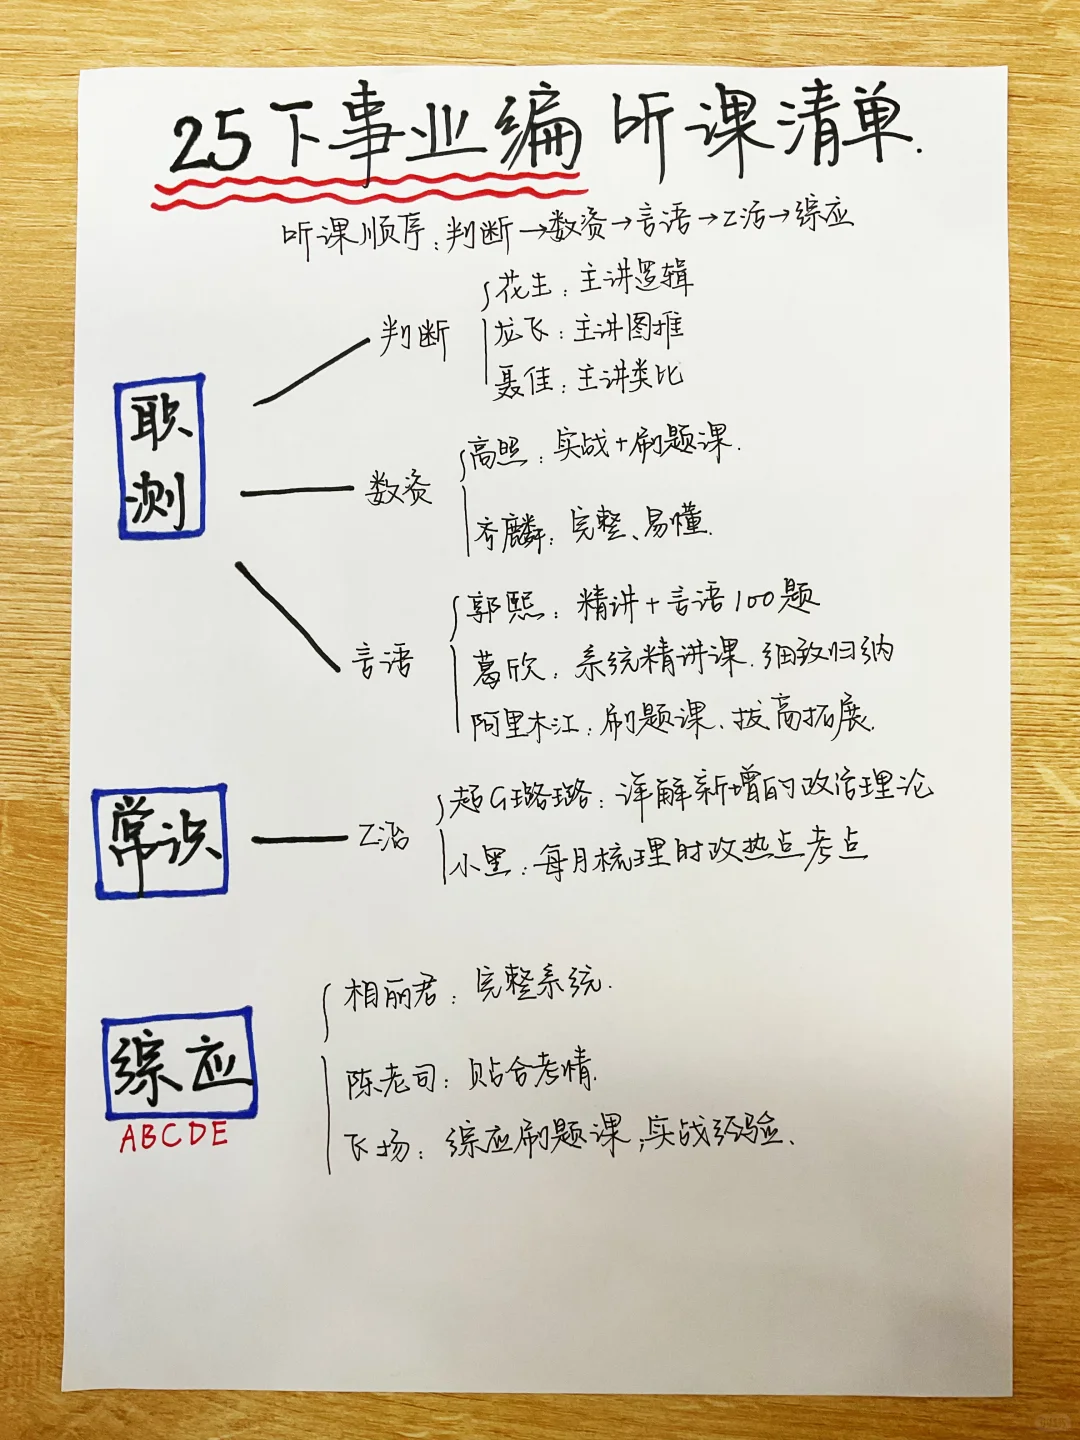 25下事业编 听课清单.
听课顺序:判断→数资→言语→Z活→综应
职测
判断
花生:主讲逻辑
龙飞:主讲图推
聂佳:主讲类比
数资
高照:实战+刷题课.
齐麟:完整、易懂.
言语
郭熙:精讲+言语100题
葛欣:系统精讲课.细致归纳
阿里木江:刷题课、拔高拓展.
常识
Z活
超G璐璐:详解新增的政治理论
小黑:每月梳理时政热点考点
综应
ABCDE
相丽君:完整系统.
陈老司:贴合考情.
飞扬:综应刷题课,实战经验、